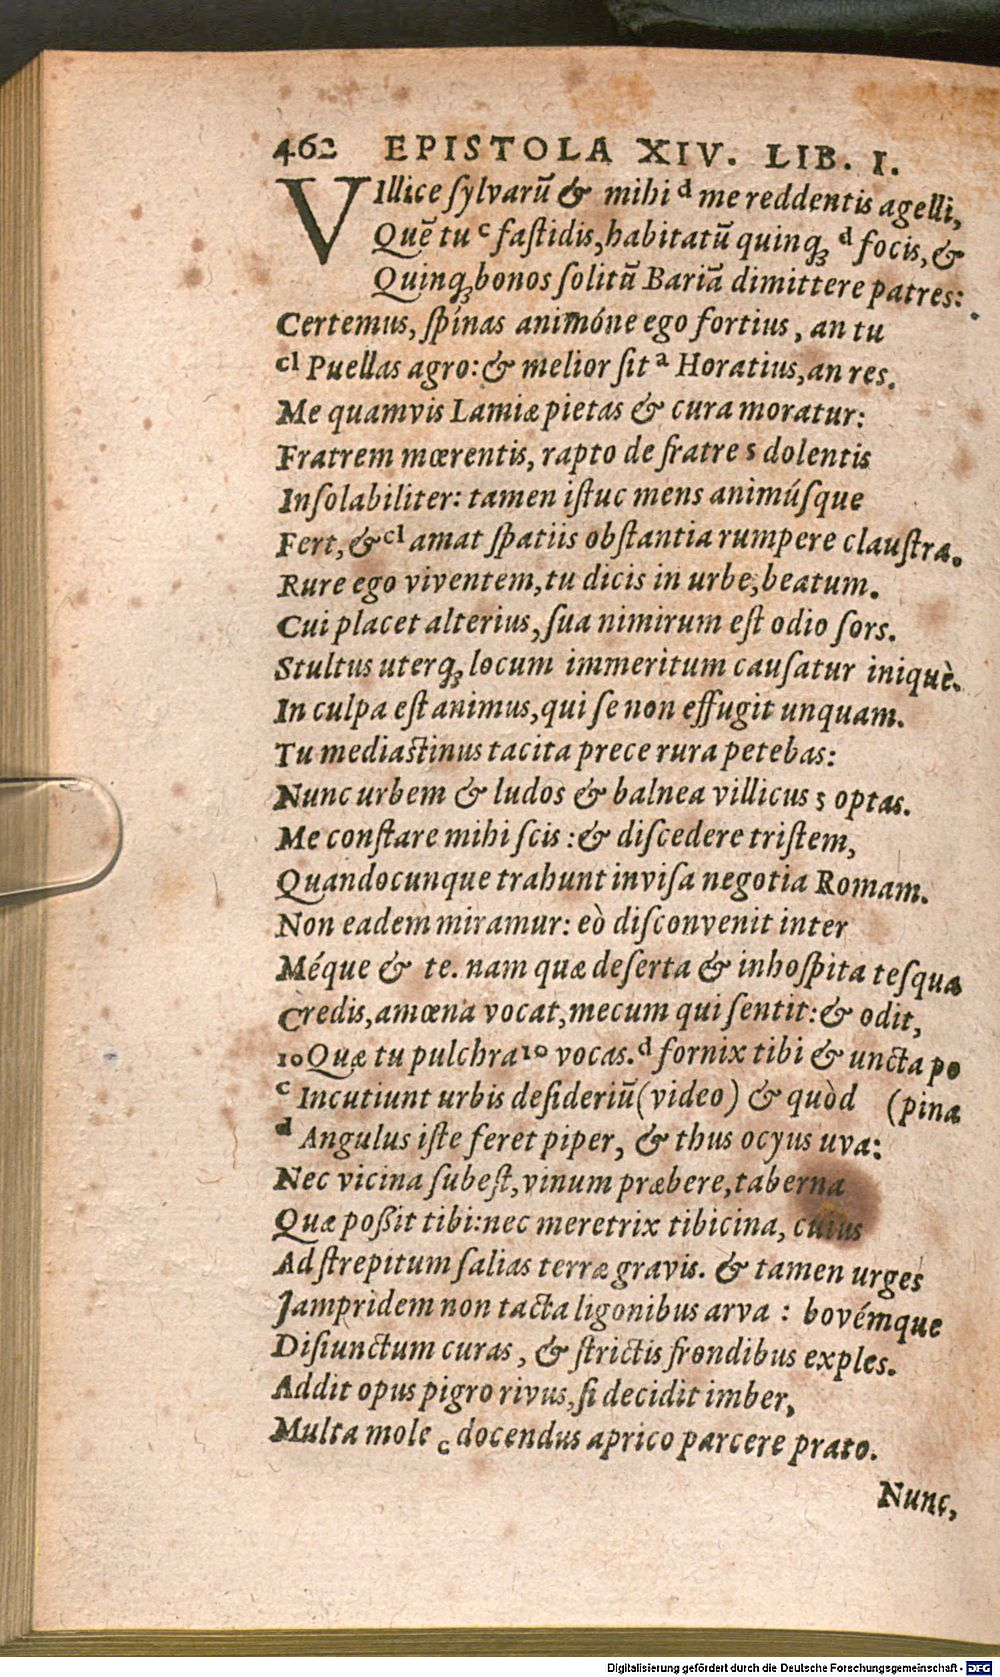 462 EPISTOLA XIV. LIB. I.
VIllice ſylvarū & mihi d me reddentis agelli,
Quē tu c faſtidis, habitatū quinq; d focis, &
Quinq; bonos ſolitū Bariā dimittere patres:
Certemus, ſpínas animóne ego fortius, an tu
cl Puellas agro: & melior ſit a Horatius, an res.
Me quamvis Lamiæ pietas & cura moratur:
Fratrem mœrentis, rapto de fratre s dolentis
Inſolabiliter: tamen iſtuc mens animúſque
Fert, & cl amat ſpatiis obſtantia rumpere clauſtra.
Rure ego viventem, tu dicis in urbe, beatum.
Cui placet alterius, ſua nimirum eſt odio ſors.
Stultus uterq; locum immeritum cauſatur iniquè.
In culpa eſt animus, qui ſe non effugit unquam.
Tu mediaſtinus tacita prece rura petebas:
Nunc urbem & ludos & balnea villicus s optas.
Me conſtare mihi ſcis: & diſcedere triſtem,
Quandocunque trahunt inviſa negotia Romam.
Non eadem miramur: eò diſconvenit inter
Méque & te. nam quæ deſerta & inhoſpita teſqua
Credis, amœna vocat, mecum qui ſentit: & odit,
10 Quæ tu pulchra 10 vocas. d fornix tibi & uncta po
c Incutiunt urbis deſideriū (video) & quòd (pina
d Angulus iſte feret piper, & thus ocyus uva:
Nec vicina ſubeſt, vinum præbere, taberna
Quæ poßit tibi: nec meretrix tibicina, cuius
Ad ſtrepitum ſalias terræ gravis. & tamen urges
Jampridem non tacta ligonibus arva: bovémque
Diſiunctum curas, & ſtrictis frondibus exples.
Addit opus pigro rivus, ſi decidit imber,
Multa mole c docendus aprico parcere prato.
Nunc,
Digitalisierung gefördert durch die Deutsche Forschungsgemeinschaft - DFG